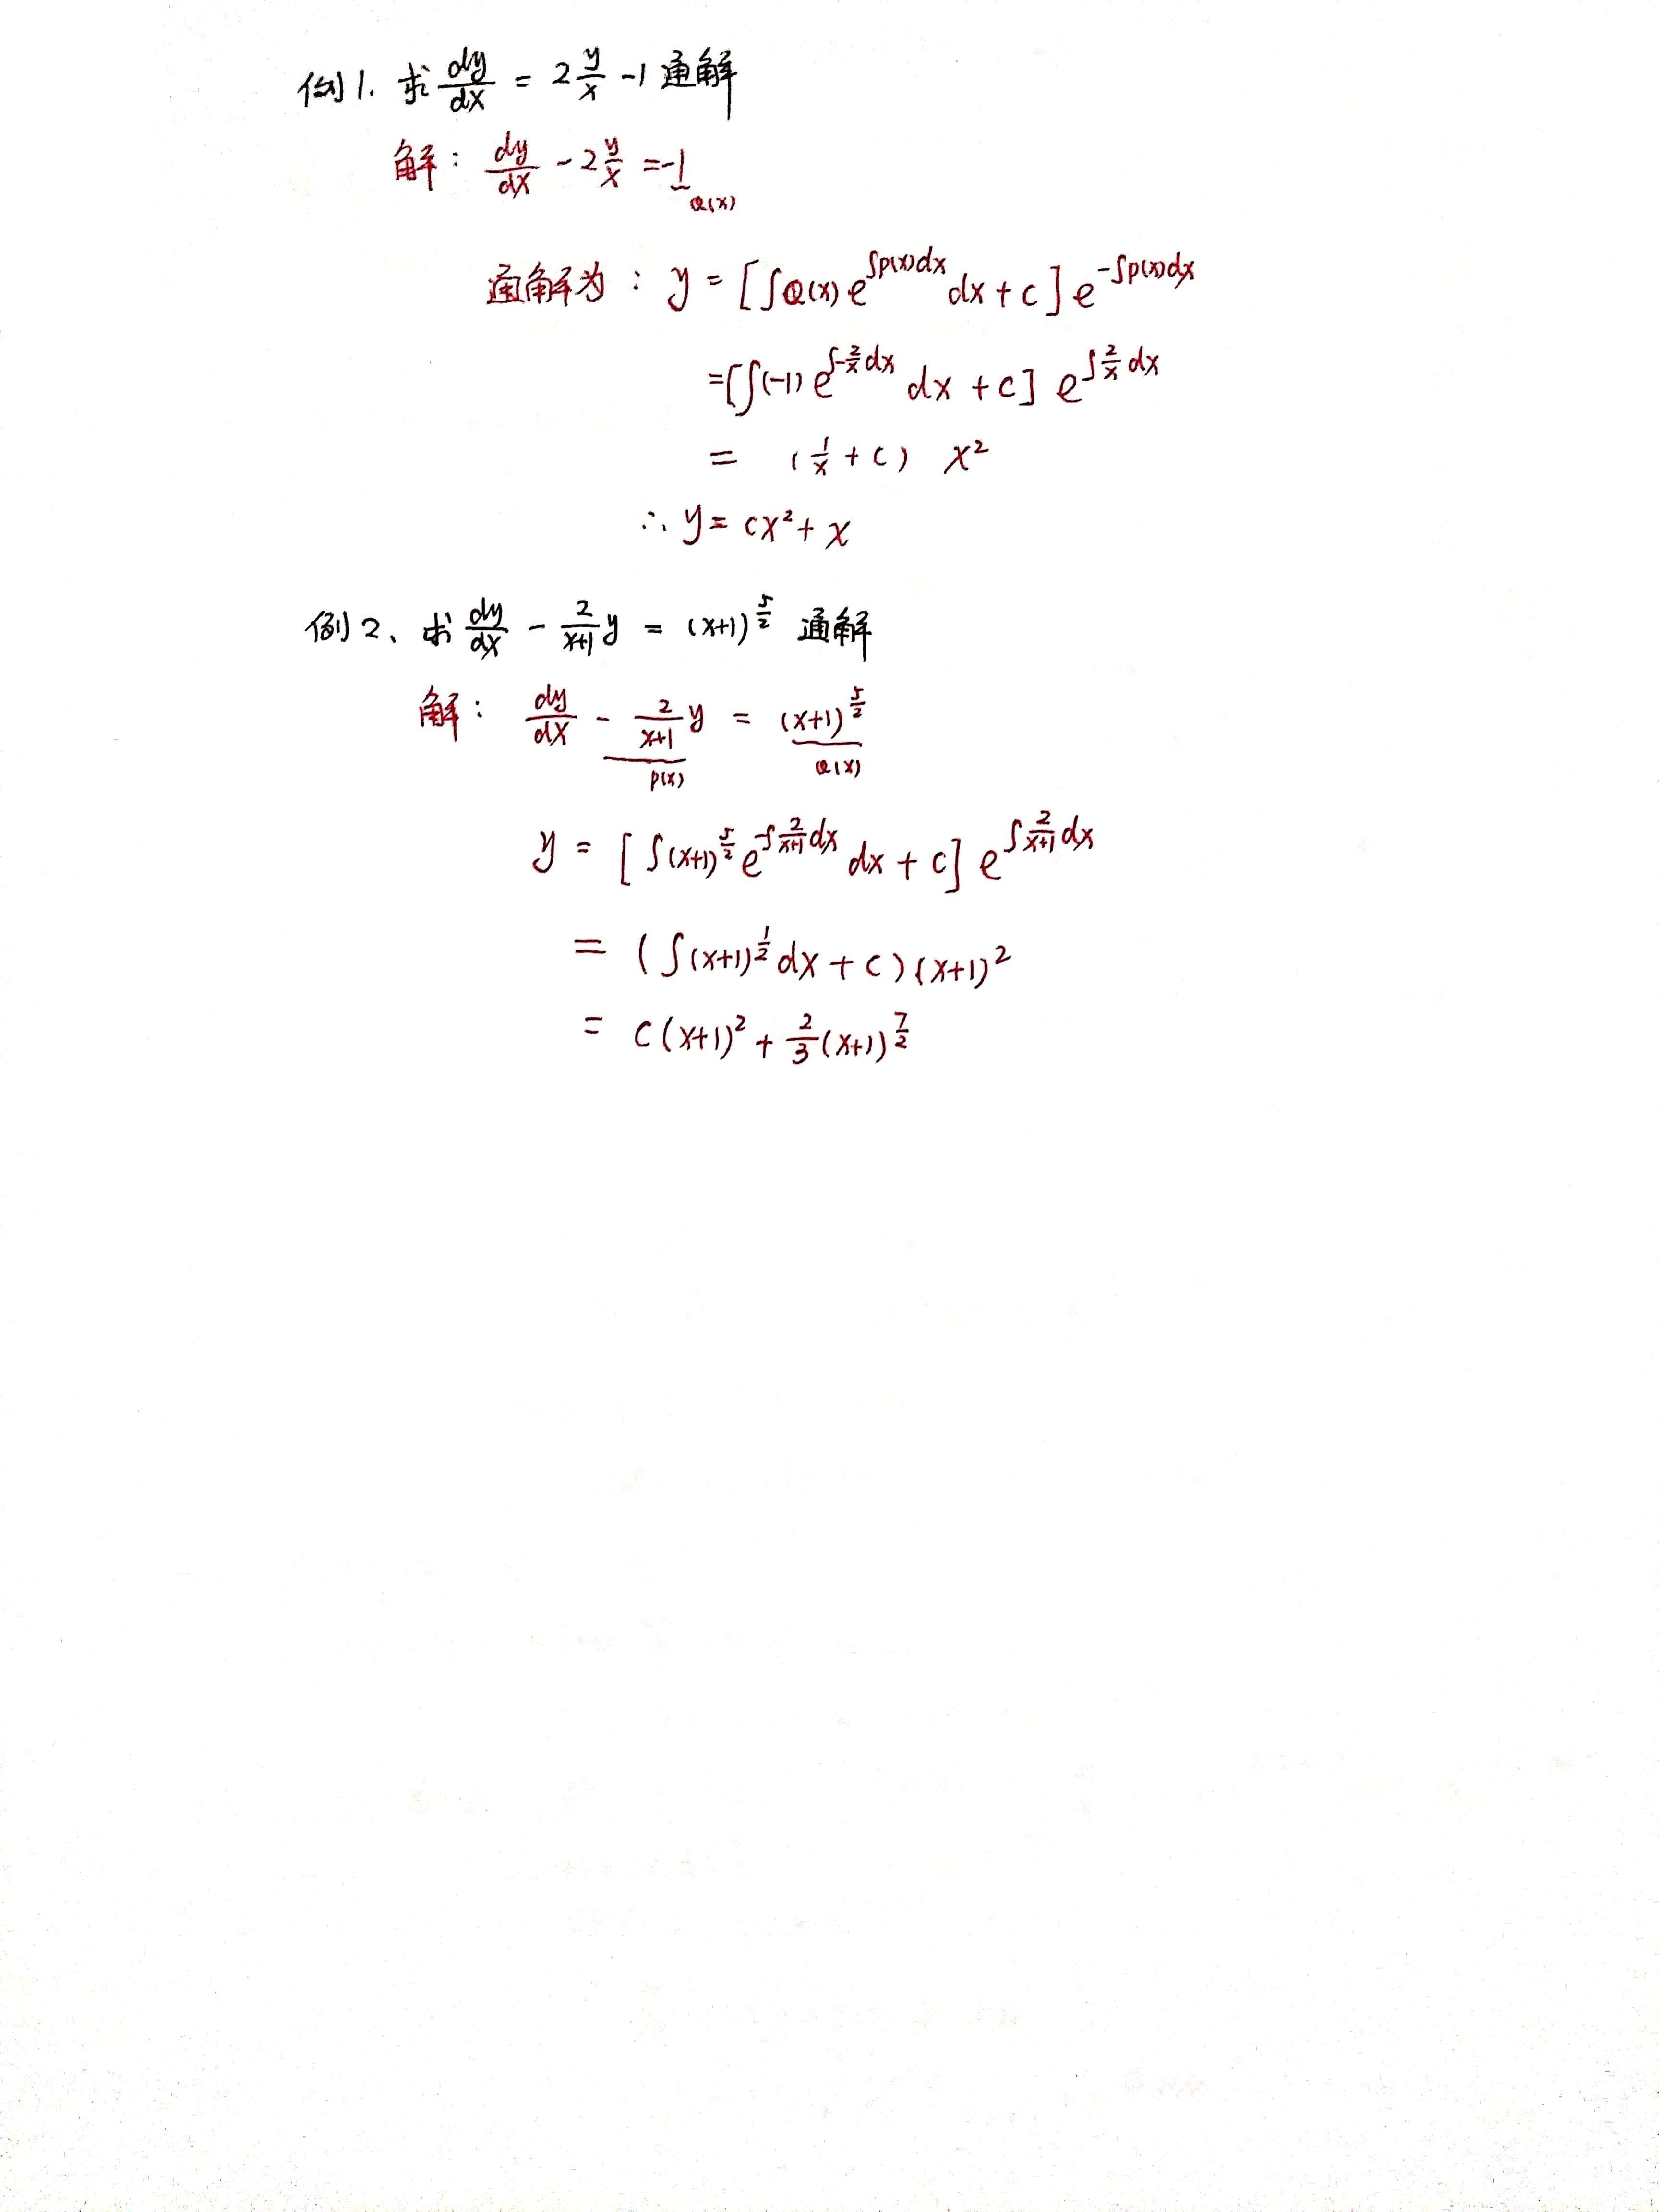 例1. 求 dy/dx = 2 y/x -1 通解
解: dy/dx - 2 y/x = -1
Q(x)
通解为: y = [∫Q(x) e^{∫p(x)dx} dx + c] e^{-∫p(x)dx}
= [∫(-1) e^{∫-2/x dx} dx + c] e^{∫2/x dx}
= (1/x + c) x²
∴ y = cx² + x
例2、求 dy/dx - 2/(x+1) y = (x+1)^{5/2} 通解
解: dy/dx - 2/(x+1) y = (x+1)^{5/2}
p(x) Q(x)
y = [∫(x+1)^{5/2} e^{-∫2/(x+1) dx} dx + c] e^{∫2/(x+1) dx}
= (∫(x+1)^{1/2} dx + c)(x+1)²
= c(x+1)² + 2/3 (x+1)^{7/2}